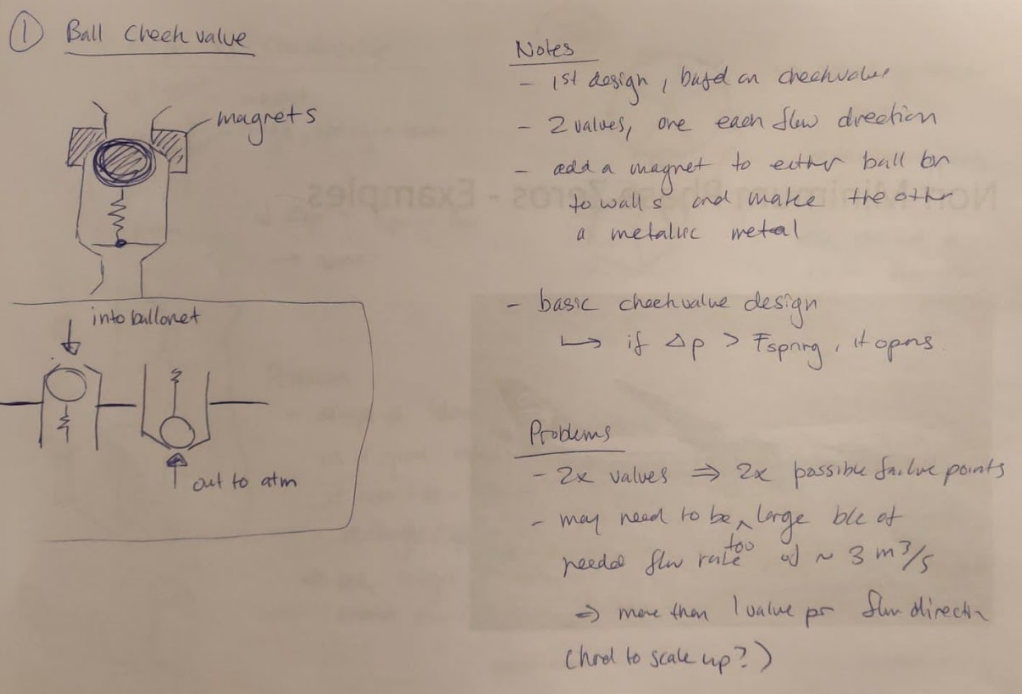 ① Ball Check valve
magnets
into ballonet
out to atm
Notes
- 1st design, based on checkvalve
- 2 valves, one each flow direction
- add a magnet to either ball or
to walls and make the other
a metallic metal
- basic checkvalve design
↳ if Δp > Fspring, it opens
Problems
- 2x valves ⇒ 2x possible failure points
- may need to be too large b/c of
needed flow rate of ~ 3 m³/s
⇒ more than 1 valve per flow direction
(hard to scale up?)
Non-Minimum Phase Zeros - Examples